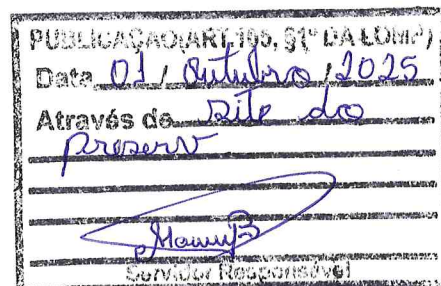 PUBLICAÇÃO(ART.105, §1º DA LOMP)
Data 01 / Outubro / 2025
Através de site do
preserv
Servidor Responsável